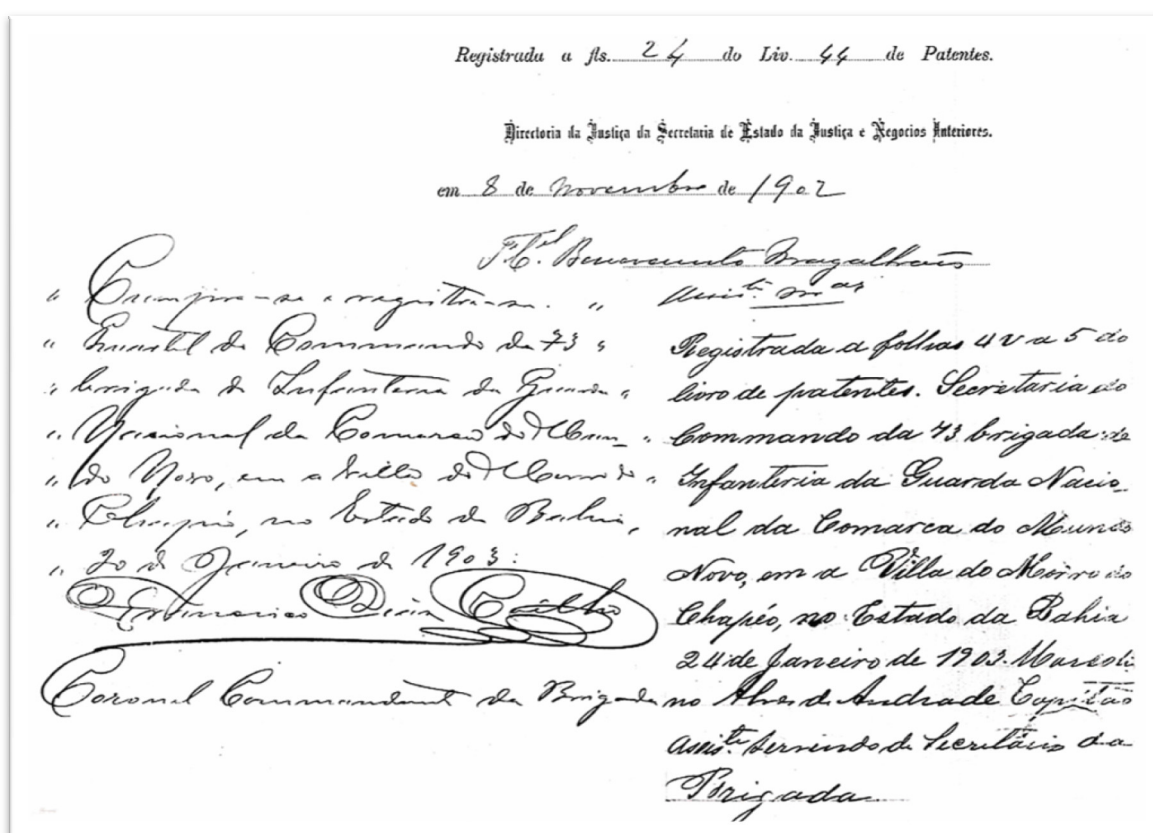 Registrada a fls. 24 do Liv. 44 de Patentes.
Directoria da Justiça da Secretaria de Estado da Justiça e Negocios Interiores.
em 8 de Novembro de 1902
Benevenuto Magalhães
" Cumpra-se e registre-se. "
" Quartel do Commando da 73 "
" brigada de Infanteria da Guarda "
" Nacional da Comarca do Mun- "
" do Novo, em a Villa do Morro do "
" Chapéo, no Estado da Bahia,
" 20 de Janeiro de 1903.
Dias Coêlho
Coronel Commandante da Brigada
Registrada a folhas 4 v a 5 do
livro de patentes. Secretaria do
Commando da 73 brigada de
Infanteria da Guarda Nacio-
nal da Comarca do Mundo
Novo, em a Villa do Morro do
Chapéo, no Estado da Bahia
24 de Janeiro de 1903. Marcoli
no Alves de Andrade Capitão
Assis.te servindo de Secretario da
Brigada